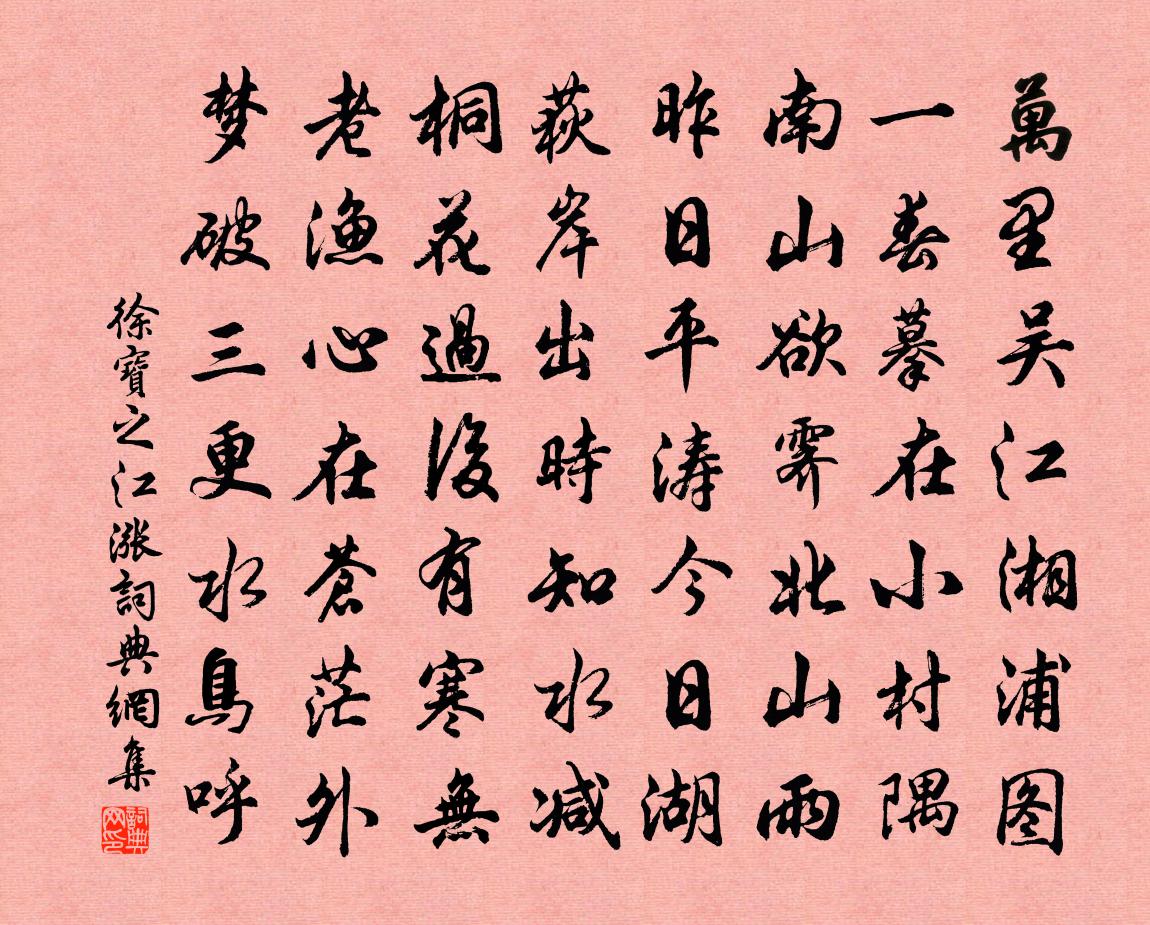 萬里吴江湘浦图
一春摹在小村隅
南山欲霁北山雨
昨日平涛今日湖
荻岸出時知水减
桐花過後有寒無
老渔心在蒼茫外
梦破三更水鳥呼
徐寶之江漲詞典網集
詞典网印